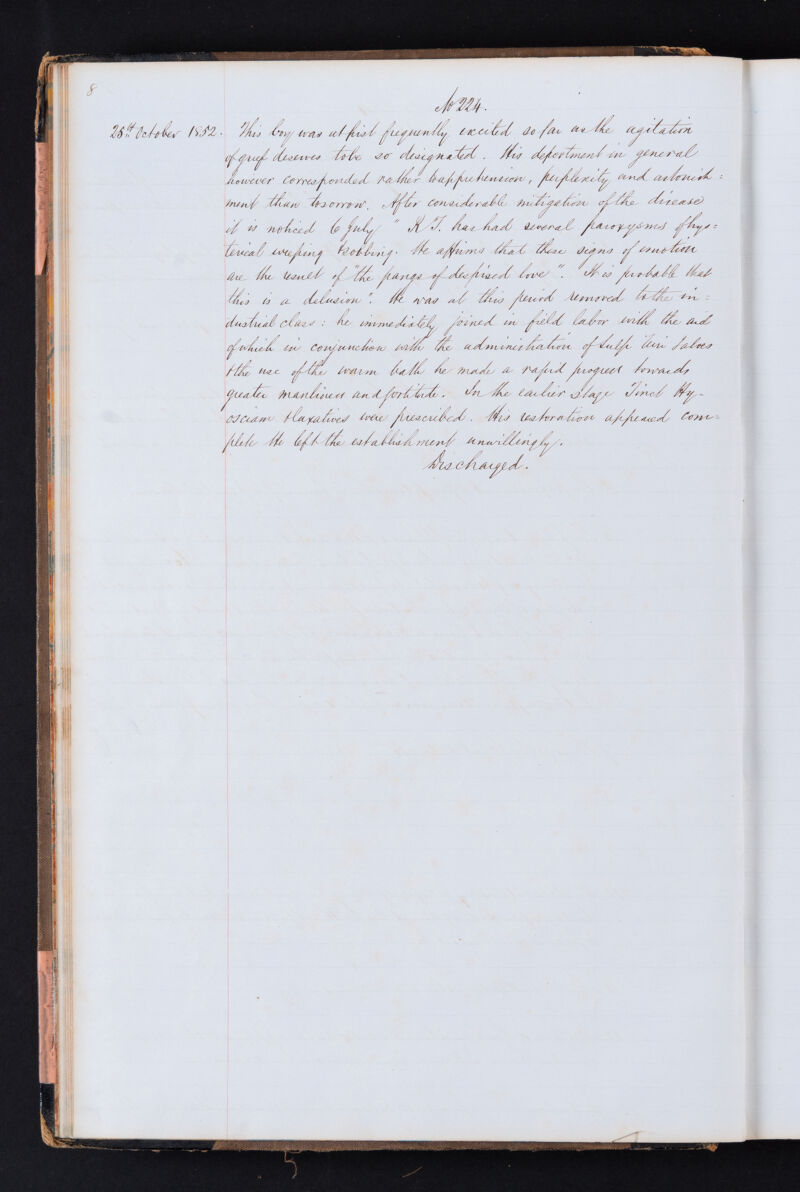 8
No 224.
25th October 1852. This boy was at first frequently excited so far as the agitation
of grief deserves to be so designated. His deportment in general
however corresponded rather to apprehension, perplexity and astonish=
ment than to sorrow. After considerable mitigation of the disease
it is noticed 6 July " R. T. has had several paroxysms of hys=
terical weeping & sobbing. He affirms that these signs of emotion
are the result of "the pangs of despised love". It is probable that
this is a delusion". He was at this period removed to the in=
dustrial class: he immediately joined in field labor with the aid
of which in conjunction with the administration of Sulp Zinci & aloes
& the use of the warm bath he made a rapid progress towards
greater manliness and fortitude. In the earlier stage Tinct Hy-
osciam & laxatives were prescribed. His restoration appeared com=
plete He left the establishment unwillingly.
Discharged.